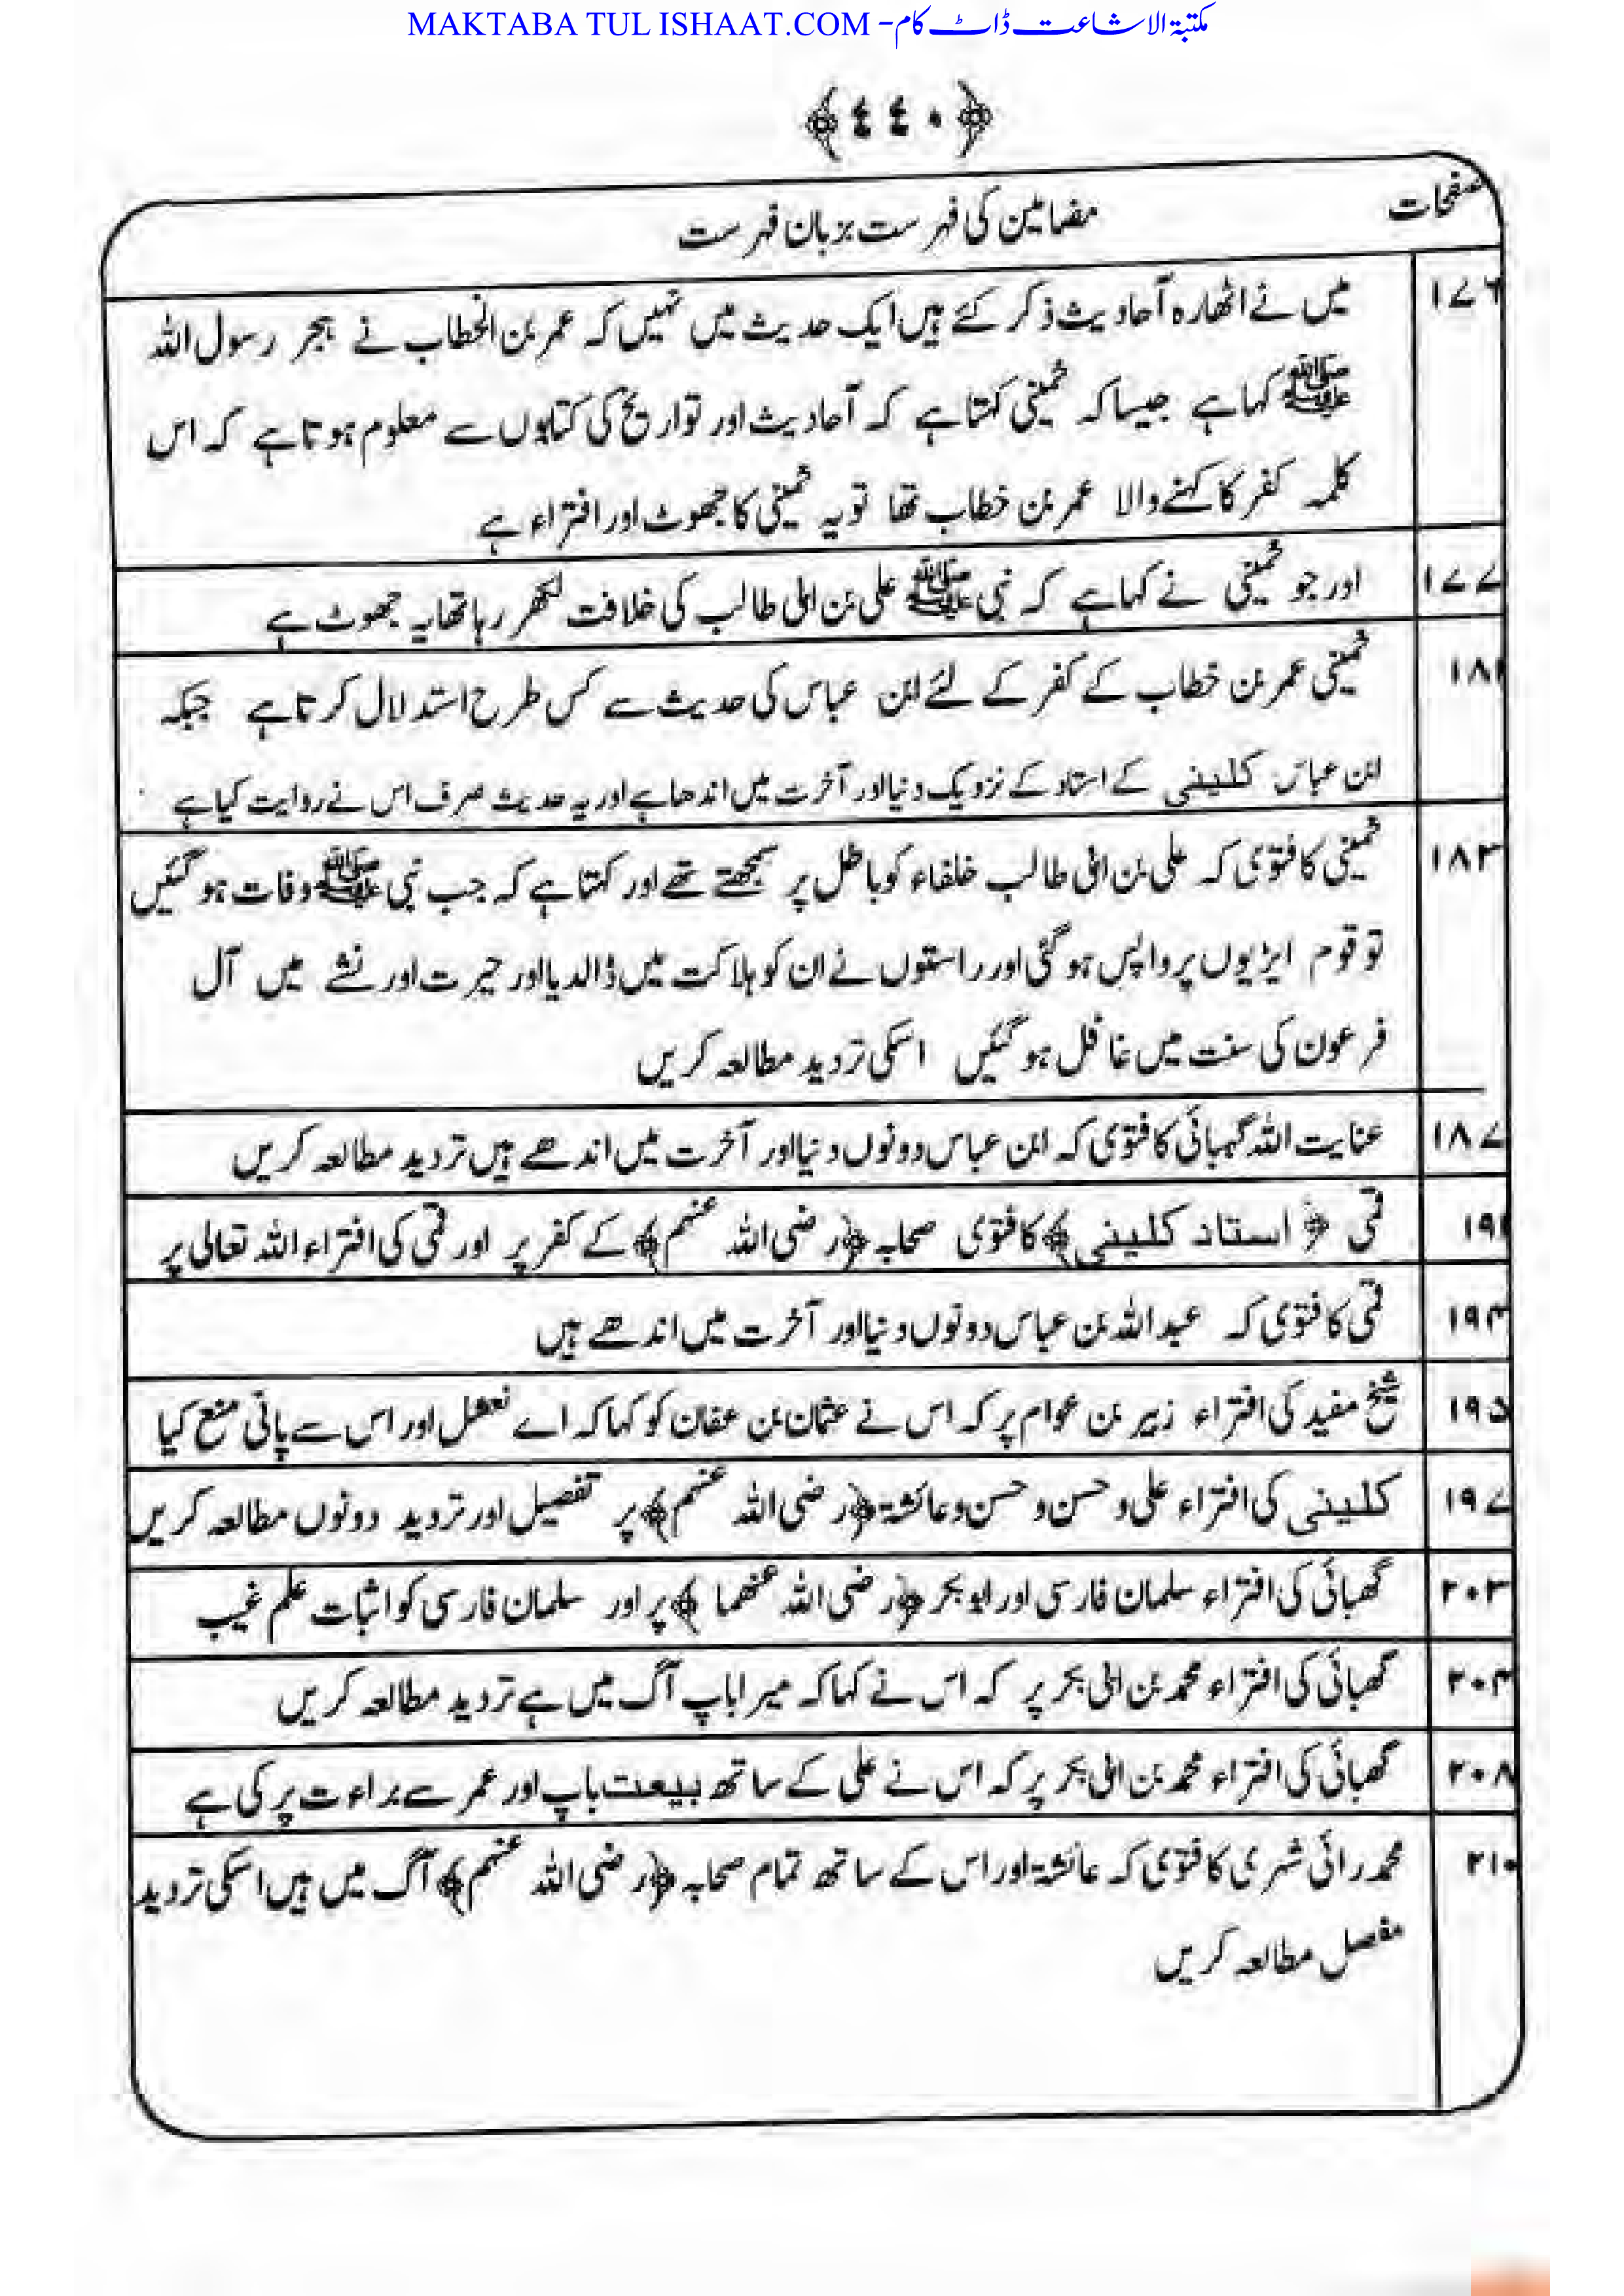 MAKTABA TUL ISHAAT.COM - مکتبۃ الاشاعت ڈاٹ کام
﴿٤٤٠﴾
صفحات مضامین کی فہرست بزبان فہرست
۱۷۶ میں نے اٹھارہ آحادیث ذکر کئے ہیں ایک حدیث میں نہیں کہ عمر بن الخطاب نے ہجر رسول اللہ
ﷺ کہا ہے جیسا کہ خمینی کہتا ہے کہ آحادیث اور تواریخ کی کتابوں سے معلوم ہوتا ہے کہ اس
کلمہ کفر کا کہنے والا عمر بن خطاب تھا تو یہ خمینی کا جھوٹ اور افتراء ہے
۱۷۷ اور جو خمینی نے کہا ہے کہ نبی ﷺ علی بن ابی طالب کی خلافت لکھر رہا تھا یہ جھوٹ ہے
۱۸۱ خمینی عمر بن خطاب کے کفر کے لئے ابن عباس کی حدیث سے کس طرح استدلال کرتا ہے جبکہ
ابن عباس کلینی کے استاد کے نزدیک دنیا اور آخرت میں اندھا ہے اور یہ حدیث صرف اس نے روایت کیا ہے
۱۸۳ خمینی کا فتوی کہ علی بن ابی طالب خلفاء کو باطل پر سمجھتے تھے اور کہتا ہے کہ جب نبی ﷺ وفات ہو گئیں
تو قوم ایڑیوں پر واپس ہو گئی اور راستوں نے ان کو ہلاکت میں ڈالدیا اور حیرت اور نشے میں آل
فرعون کی سنت میں غافل ہو گئیں اسکی تردید مطالعہ کریں
۱۸۷ عنایت اللہ گہبائی کا فتوی کہ ابن عباس دونوں دنیا اور آخرت میں اندھے ہیں تردید مطالعہ کریں
۱۹۱ قمی ﴿استاذ کلینی﴾ کا فتوی صحابہ ﴿رضی اللہ عنہم﴾ کے کفر پر اور قمی کی افتراء اللہ تعالی پر
۱۹۴ قمی کا فتوی کہ عبد اللہ بن عباس دونوں دنیا اور آخرت میں اندھے ہیں
۱۹۵ شیخ مفید کی افتراء زبیر بن عوام پر کہ اس نے عثمان بن عفان کو کہا کہ اے نعثل اور اس سے پانی منع کیا
۱۹۷ کلینی کی افتراء علی و حسن و حسن و عائشۃ ﴿رضی اللہ عنہم﴾ پر تفصیل اور تردید دونوں مطالعہ کریں
۲۰۳ گھبائی کی افتراء سلمان فارسی اور ابو بکر ﴿رضی اللہ عنھما﴾ پر اور سلمان فارسی کو اثبات علم غیب
۲۰۴ گھبائی کی افتراء محمد بن ابی بکر پر کہ اس نے کہا کہ میرا باپ آگ میں ہے تردید مطالعہ کریں
۲۰۸ گھبائی کی افتراء محمد بن ابی بکر پر کہ اس نے علی کے ساتھ بیعت باپ اور عمر سے براءت پر کی ہے
۲۱۰ محمد رائی شہری کا فتوی کہ عائشۃ اور اس کے ساتھ تمام صحابہ ﴿رضی اللہ عنہم﴾ آگ میں ہیں اسکی تردید
مفصل مطالعہ کریں